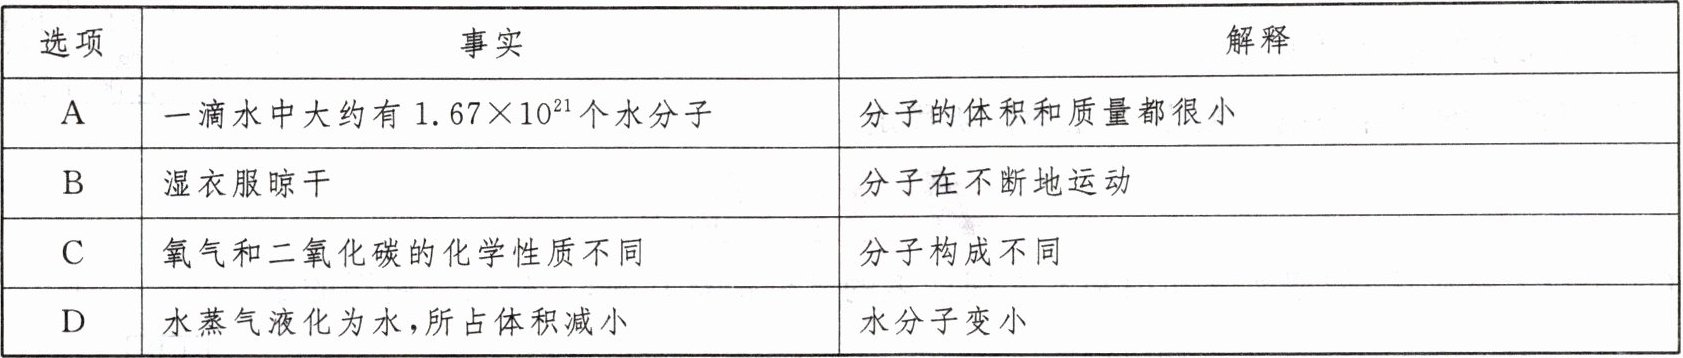 选项 事实 解释
A 一滴水中大约有 1.67×10²¹个水分子 分子的体积和质量都很小
B 湿衣服晾干 分子在不断地运动
C 氧气和二氧化碳的化学性质不同 分子构成不同
D 水蒸气液化为水,所占体积减小 水分子变小